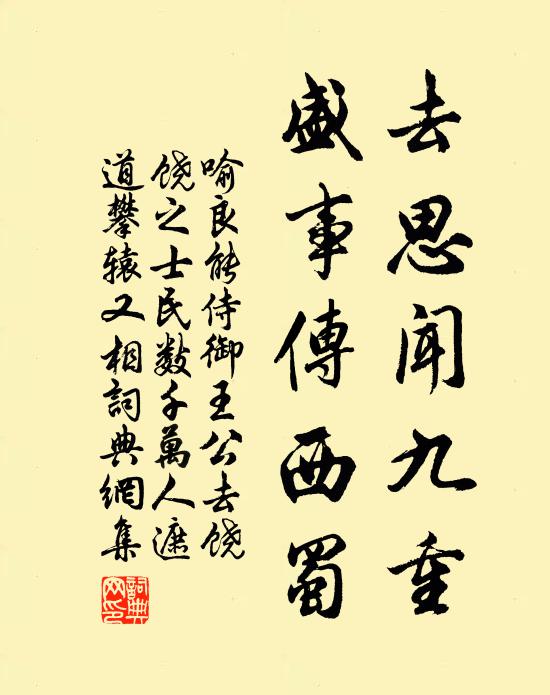 去思闻九重
盛事傳西蜀
喻良能侍御王公去饶
饶之士民数千萬人遮
道攀辕又相詞典網集
詞典網印